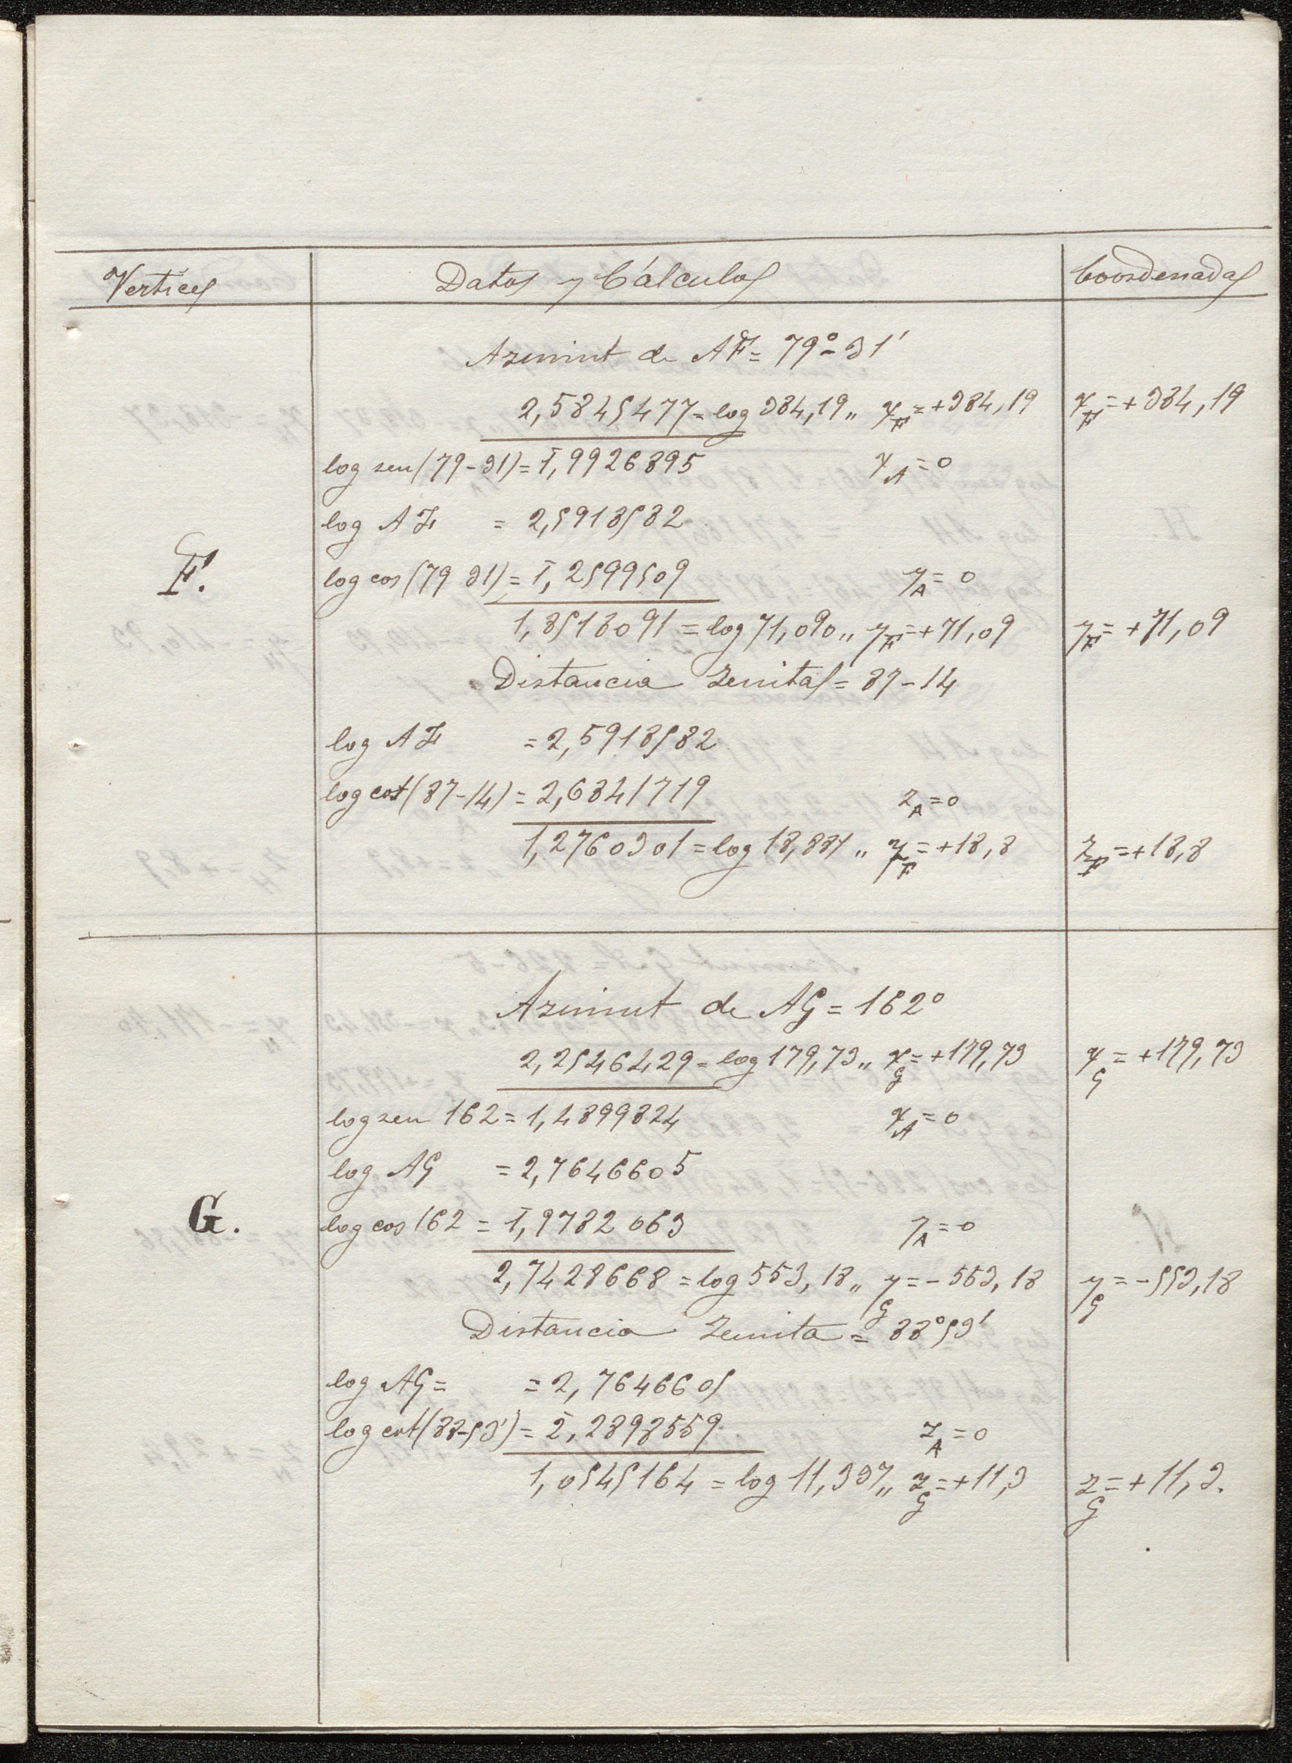 Vertices Datos y Cálculos Coordenadas
Azimut de AF = 79°-31'
2,5845477 = log 384,19 „ x_F = +384,19 x_F = +384,19
log sen (79-31) = 1̄,9926895 x_A = 0
log AF = 2,5918582
F. log cos (79 31) = 1̄,2599509 y_A = 0
1,8518091 = log 71,090 „ y_F = +71,09 y_F = +71,09
Distancia Zenital = 87-14
log AF = 2,5918582
log cot (87-14) = 2,6841719 z_A = 0
1,2760301 = log 18,881 „ z_F = +18,8 z_F = +18,8
Azimut de AG = 162°
2,2546429 = log 179,73 „ x_G = +179,73 x_G = +179,73
log sen 162 = 1,4899824 x_A = 0
log AG = 2,7646605
G. log cos 162 = 1̄,9782063 y_A = 0
2,7428668 = log 553,18 „ y_G = -553,18 y_G = -553,18
Distancia Zenita = 88°53'
log AG = = 2,7646605
log cot (88-53') = 2̄,2898559 z_A = 0
1,0545164 = log 11,337 „ z_G = +11,3 z_G = +11,3.